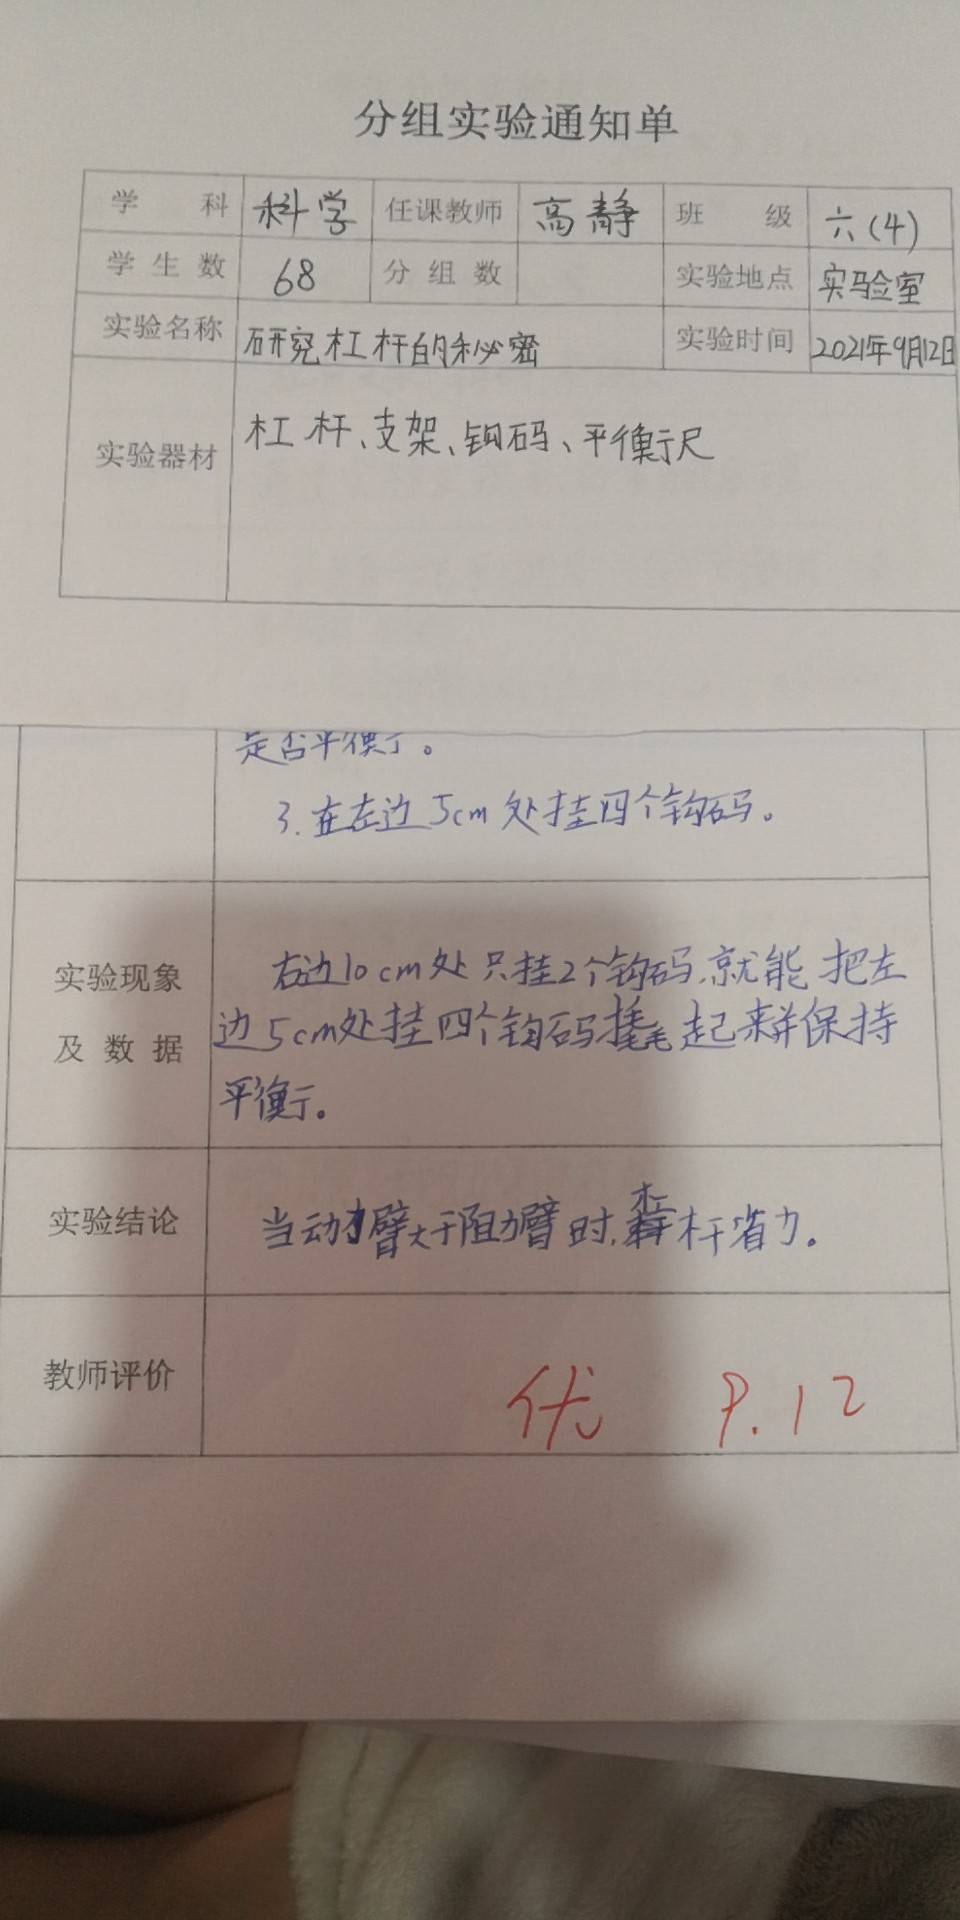 分组实验通知单
学 科 科学 任课教师 高静 班 级 六(4)
学生数 68 分组数 实验地点 实验室
实验名称 研究杠杆的秘密 实验时间 2021年9月12日
实验器材 杠杆、支架、钩码、平衡尺
是否平衡了。
3.在左边5cm处挂四个钩码。
实验现象
及数据
右边10cm处只挂2个钩码,就能把左
边5cm处挂四个钩码撬起来并保持
平衡。
实验结论 当动力臂大于阻力臂时,杠杆省力。
教师评价 优 9.12